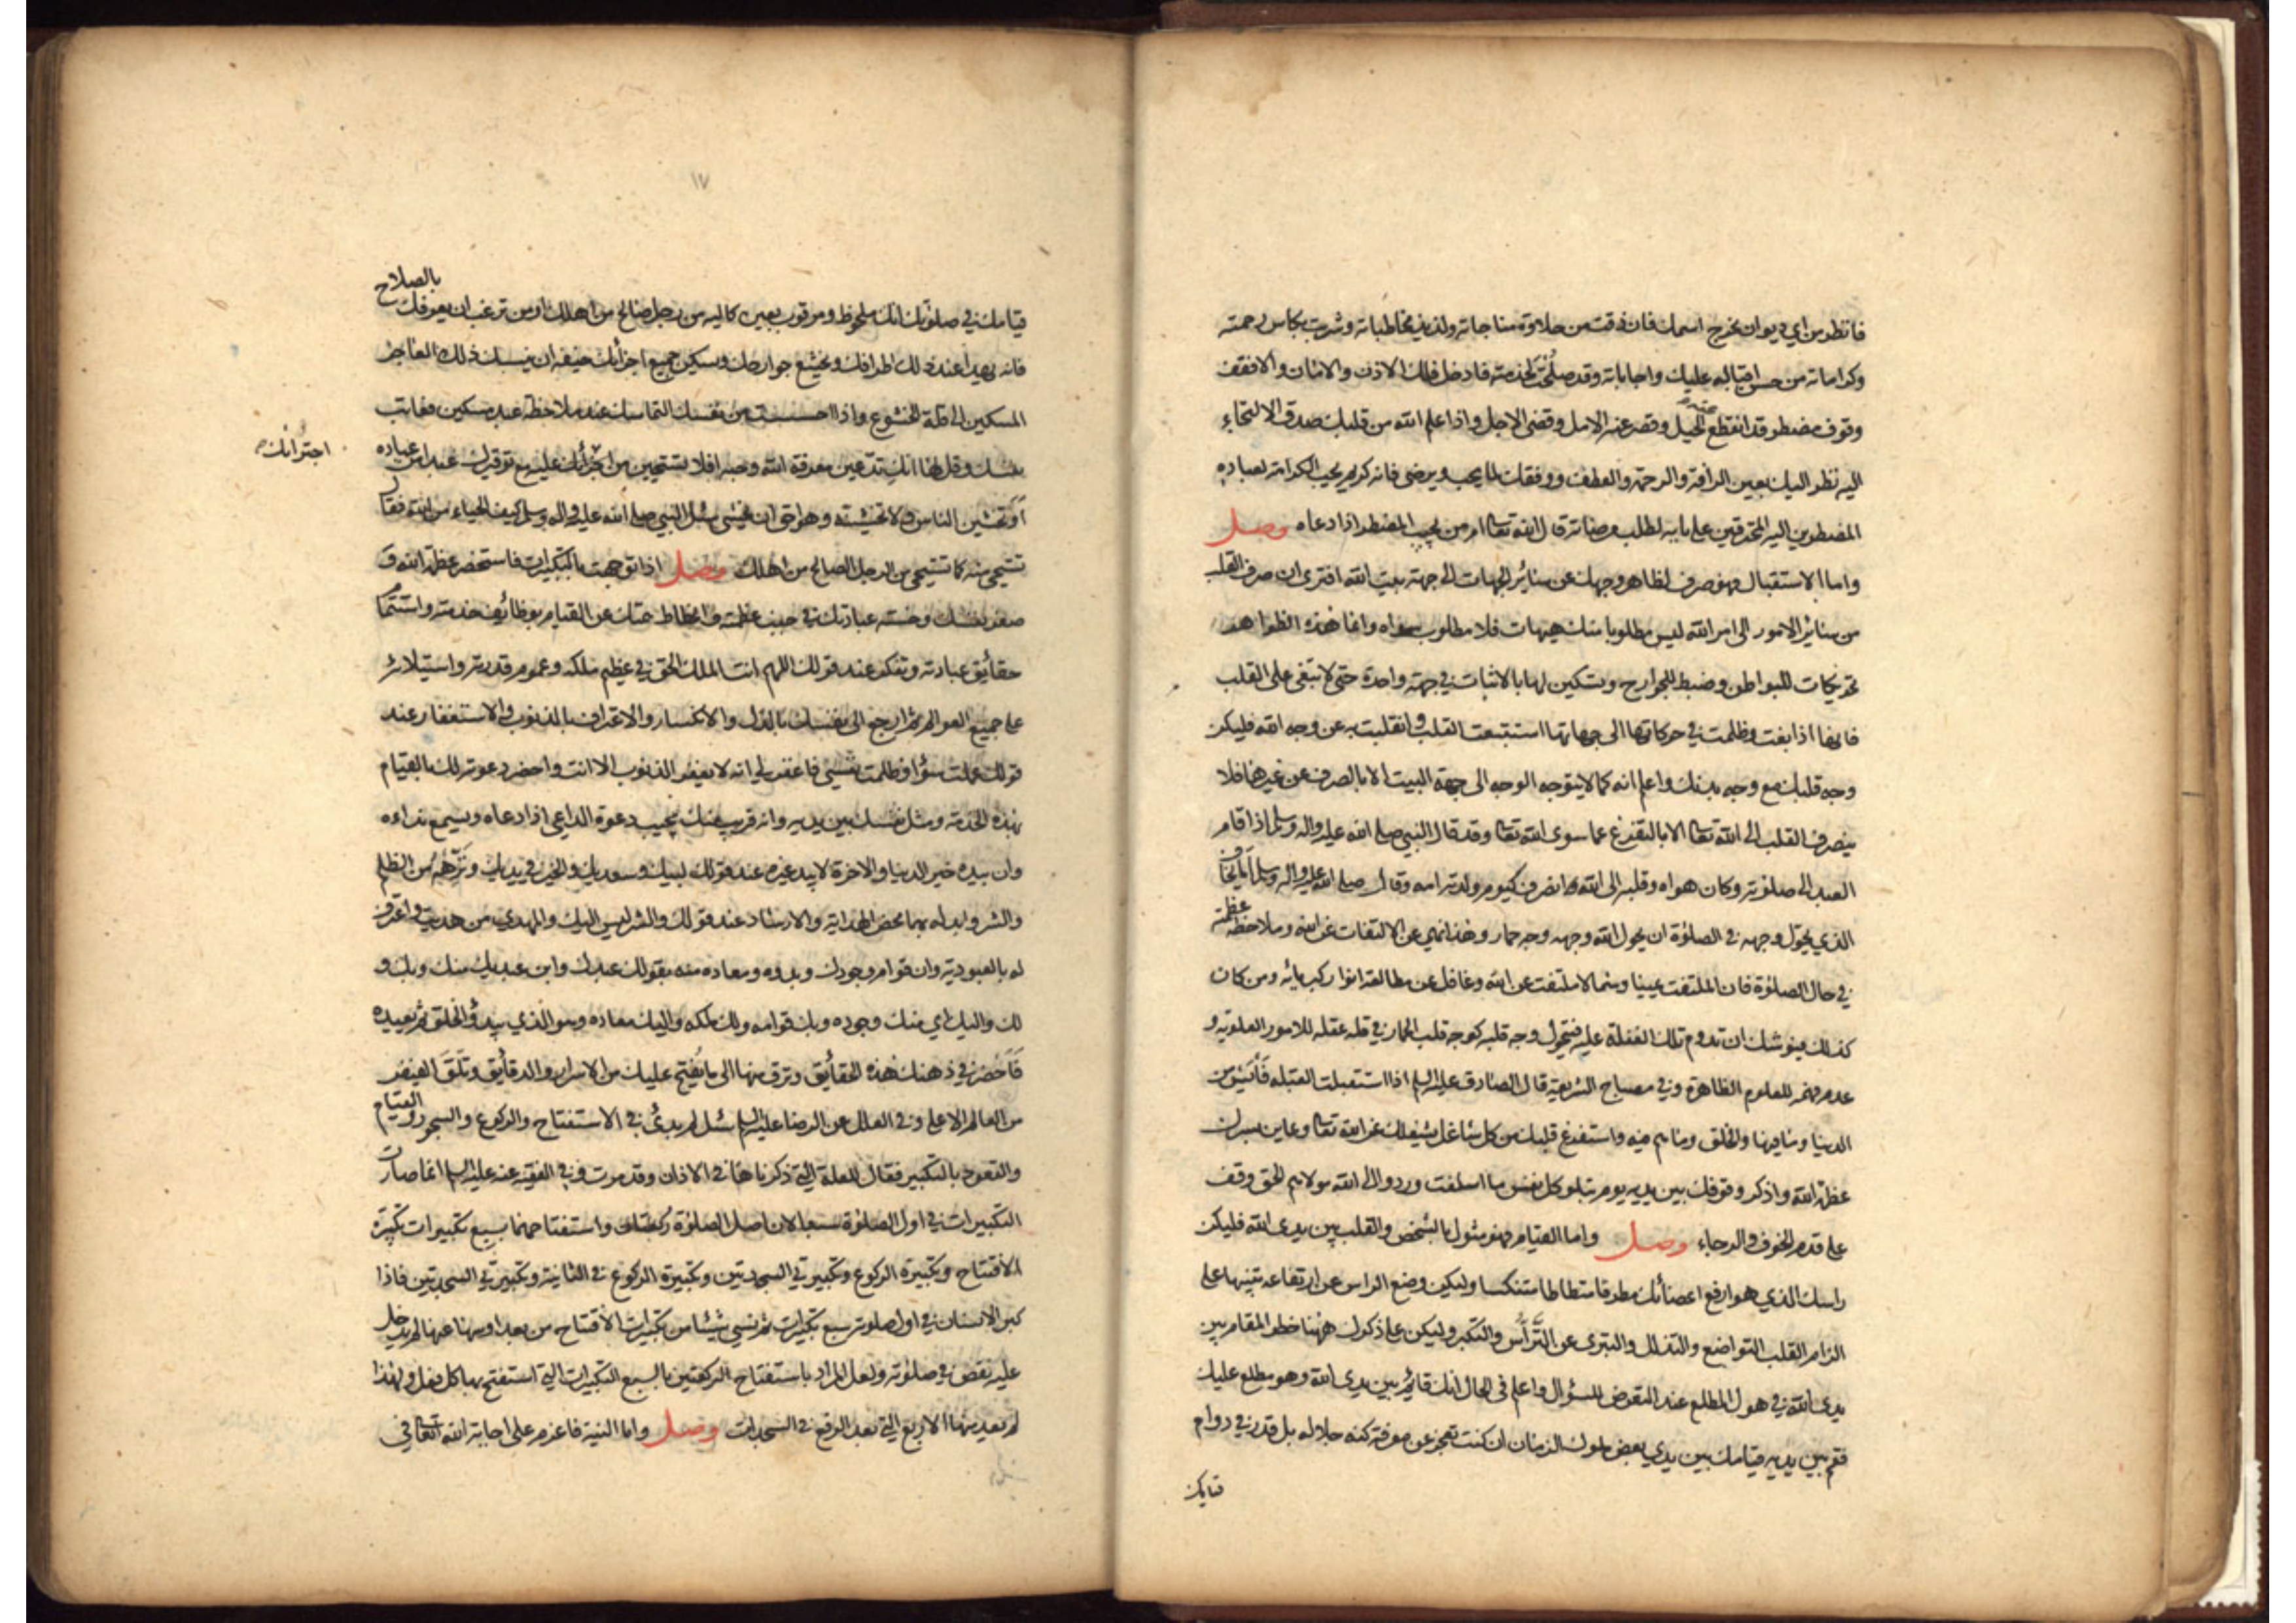 فانظر من اي ديوان يخرج اسمك فان ذقت من حلاوة مناجاته ولذيذ مخاطباته وشربت بكاس رحمته
وكراماته من حسن اقباله عليك واجاباته وقد صلحت لخدمته فادخل فلك الاذن والامان والا فقف
وقوف مضطر قد انقطع عنه الحيل وقصر عنه الامل وقضى الاجل واذا علم الله من قلبك صدق الالتجاء
اليه نظر اليك بعين الرافة والرحمة والعطف ووفقك لما يحب ويرضى فانه كريم يحب الكرامة لعباده
المضطرين اليه المحترقين على بابه لطلب مرضاته قال الله تعالى امن يجيب المضطر اذا دعاه وصل
واما الاستقبال فهو صرف لظاهر وجهك عن سائر الجهات الى جهة بيت الله افترى ان صرف القلب
من سائر الامور الى امر الله ليس مطلوبا منك هيهات فلا مطلوب سواه وانما هذه الظواهر
تحريكات للبواطن وضبط للجوارح وتسكين لها بالاثبات في جهة واحدة حتى لا تبغى على القلب
فانها اذا بغت وظلمت في حركاتها الى جهاتها استتبعت القلب وانقلبت به عن وجه الله فليكن
وجه قلبك مع وجه بدنك واعلم انه كما لا يتوجه الوجه الى جهة البيت الا بالصرف عن غيرها فلا
ينصرف القلب الى الله تعالى الا بالتفرغ عما سوى الله تعالى وقد قال النبي صلى الله عليه واله وسلم اذا قام
العبد الى صلوته وكان هواه وقلبه الى الله انصرف كيوم ولدته امه وقال صلى الله عليه واله وسلم اما يخاف
الذي يحول وجهه في الصلوة ان يحول الله وجهه وجه حمار وهذا نهي عن الالتفات عن الله وملاحظة عظمته
في حال الصلوة فان الملتفت يمينا وشمالا ملتفت عن الله وغافل عن مطالعة انوار كبريائه ومن كان
كذلك فيوشك ان تدوم تلك الغفلة عليه فيتحول وجه قلبه كوجه قلب الحمار في قلة عقله للامور العلوية و
عدم فهمه للعلوم الظاهرة وفي مصباح الشريعة قال الصادق عليه السلم اذا استقبلت القبلة فايس من
الدنيا وما فيها والخلق وما هم فيه واستفرغ قلبك من كل شاغل يشغلك عن الله تعالى وعاين بسرك
عظمة الله واذكر وقوفك بين يديه يوم تبلو كل نفس ما اسلفت وردوا الى الله مولاهم الحق وقف
على قدم الخوف والرجاء وصل واما القيام فهو مثول بالشخص والقلب بين يدي الله فليكن
راسك الذي هو ارفع اعضائك مطرقا متطاطا متنكسا وليكن وضع الراس عن ارتفاعه تنبيها على
الزام القلب التواضع والتذلل والتبري عن التراس والتكبر وليكن على ذكرك ههنا خطر المقام بين
يدي الله في هول المطلع عند التعرض للسؤال واعلم في الحال انك قائم بين يدي الله وهو مطلع عليك
فقم بين يديه قيامك بين يدي بعض ملوك الزمان ان كنت تعجز عن معرفة كنه جلاله بل قدر في دوام
قيامك
١٧
قيامك في صلوتك انك ملحوظ ومرقوب بعين كالية من رجل صالح من اهلك او من ترغب ان يعرفك بالصلاح
فانه يهدا عند ذلك اطرافك ويخشع جوارحك ويسكن جميع اجزائك خيفة ان ينسبك ذلك العاجز
المسكين الى قلة الخشوع واذا احسست من نفسك التماسك عند ملاحظة عبد مسكين فعاتب
نفسك وقل لها انك تدعين معرفة الله وحبه افلا تستحيين من اجترائك عليه مع توقيرك عبدا من عباده
اجترائك
او تخشين الناس ولا تخشينه وهو احق ان يخشى سئل النبي صلى الله عليه واله وسلم كيف الحياء من الله فقال
تستحيي منه كما تستحيي من الرجل الصالح من اهلك وصل اذا توجهت بالتكبيرات فاستحضر عظمة الله و
صغر نفسك وخسة عبادتك في جنب عظمته وانحطاط همتك عن القيام بوظائف خدمته واستتمام
حقائق عبادته وتفكر عند قولك اللهم انت الملك الحق في عظيم ملكه وعموم قدرته واستيلائه
على جميع العوالم ثم ارجع الى نفسك بالذل والانكسار والاعتراف بالذنوب والاستغفار عند
قولك عملت سوءا وظلمت نفسي فاغفر لي انه لا يغفر الذنوب الا انت واحضر دعوته لك بالقيام
بهذه الخدمة ومثل نفسك بين يديه وانه قريب منك يجيب دعوة الداعي اذا دعاه ويسمع نداءه
وان بيده خير الدنيا والاخرة لا بيد غيره عند قولك لبيك وسعديك والخير في يديك ونزهه من الظلم
والشر وابدله بهما محض الهداية والارشاد عند قولك والشر ليس اليك والمهدي من هديت واعترف
له بالعبودية وان قوام وجودك وبدوه ومعاده منه بقولك عبدك وابن عبديك منك وبك و
لك واليك اي منك وجوده وبك قوامه ولك ملكه واليك معاده وهو الذي يبدؤ الخلق ثم يعيده
فاحضر في ذهنك هذه الحقائق وترق منها الى ما يفتح عليك من الاسرار والدقائق وتلق الفيض
من العالم الاعلى وفي العلل عن الرضا عليه السلم سئل لم بدئ في الاستفتاح والركوع والسجود والقيام
والقعود بالتكبير فقال للعلة التي ذكرناها في الاذان وقد مرت وفي الفقيه عنه عليه السلم انما صارت
التكبيرات في اول الصلوة سبعا لان اصل الصلوة ركعتان واستفتاحهما بسبع تكبيرات تكبيرة
الافتتاح وتكبيرة الركوع وتكبيرتي السجدتين وتكبيرة الركوع في الثانية وتكبيرتي السجدتين فاذا
كبر الانسان في اول صلوته سبع تكبيرات ثم نسي شيئا من تكبيرات الافتتاح من بعد او سها عنها لم يدخل
عليه نقص في صلوته ولعل المراد باستفتاح الركعتين بالسبع التكبيرات التي استفتح بها كل فعل ولهذا
لم يعد منها الاربع التي بعد الرفع في السجدات وصل واما النية فاعزم على اجابة الله تعالى في